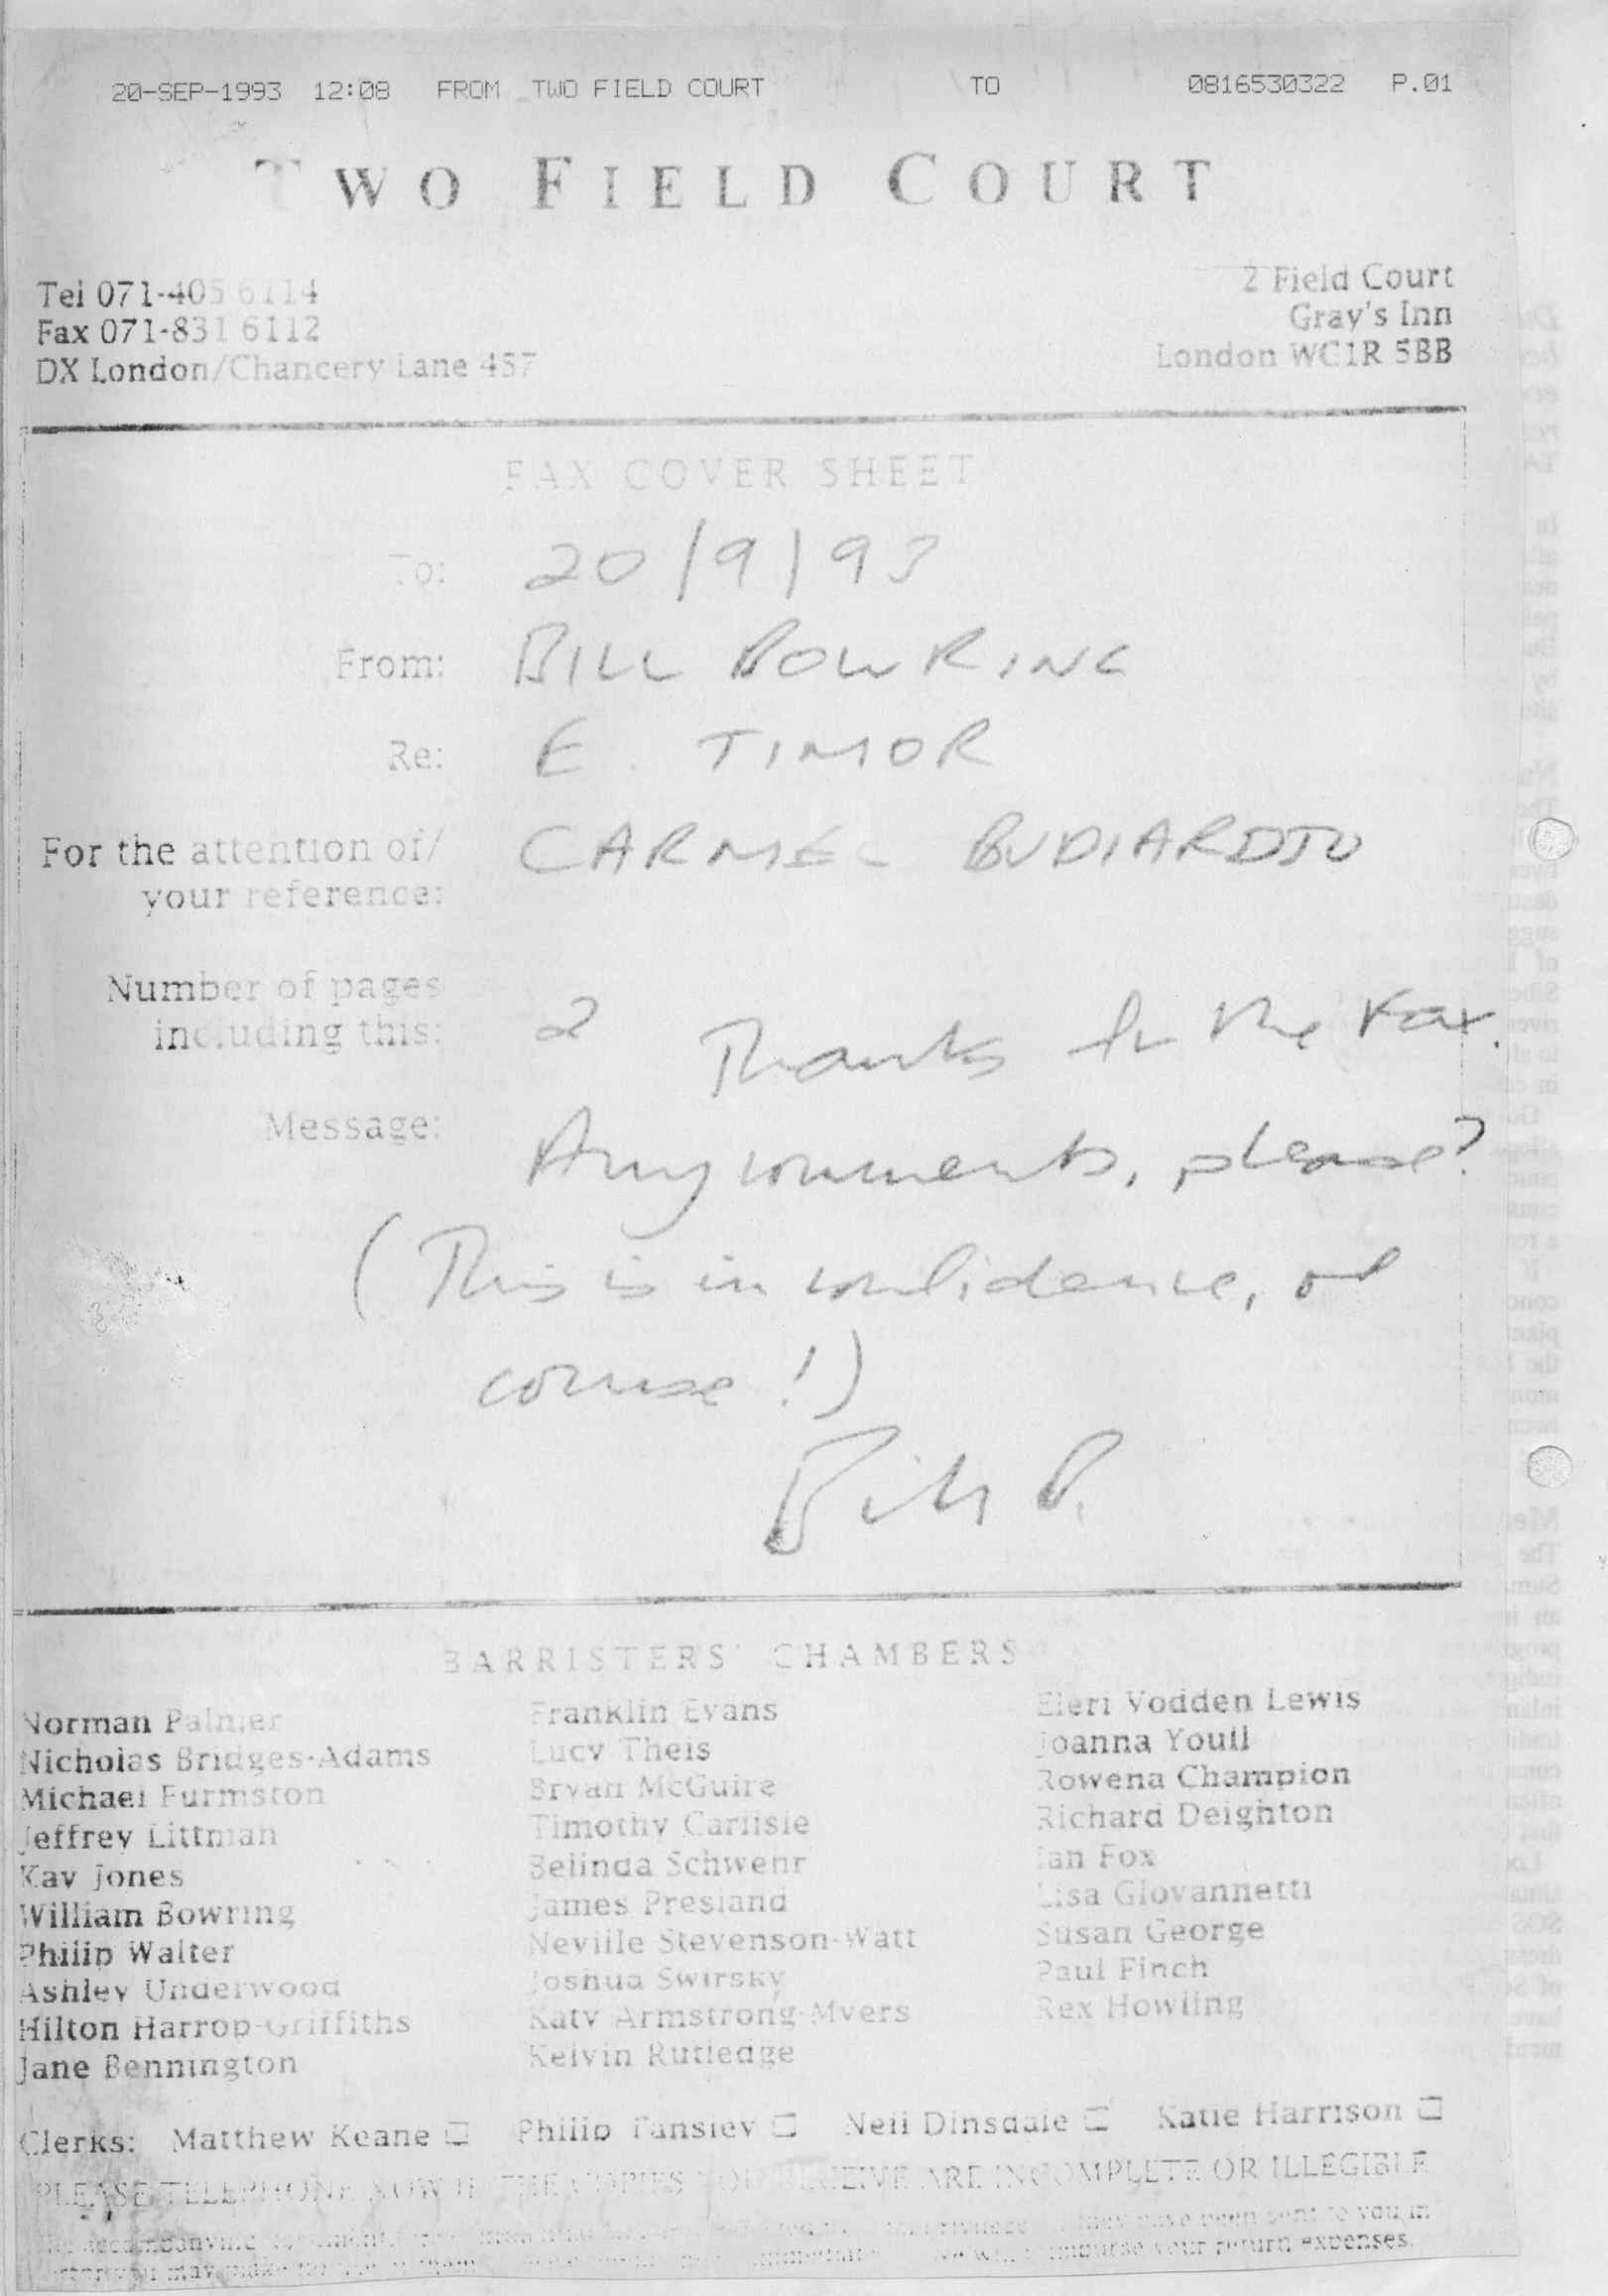 20-SEP-1993 12:08 FROM TWO FIELD COURT TO 0816530322 P.01
TWO FIELD COURT
Tel 071-405 6114
Fax 071-831 6112
DX London/Chancery Lane 457
2 Field Court
Gray's Inn
London WC1R 5BB
FAX COVER SHEET
To: 20/9/93
From: BILL BOWRING
Re: E. TIMOR
For the attention of/ CARMEL BUDIARDJO
your reference:
Number of pages
including this: 2 Thanks for the Fax.
Message: Any comments, please?
(This is in confidence, of
course!)
Bill B.
BARRISTERS' CHAMBERS
Norman Palmer
Nicholas Bridges-Adams
Michael Furmston
Jeffrey Littman
Kay Jones
William Bowring
Philip Walter
Ashley Underwood
Hilton Harrop-Griffiths
Jane Bennington
Franklin Evans
Lucy Theis
Bryan McGuire
Timothy Carlisle
Belinda Schwehr
James Presland
Neville Stevenson-Watt
Joshua Swirsky
Katy Armstrong-Myers
Kelvin Rutledge
Eleri Vodden Lewis
Joanna Youll
Rowena Champion
Richard Deighton
Ian Fox
Lisa Giovannetti
Susan George
Paul Finch
Rex Howling
Clerks: Matthew Keane Philip Tansley Neil Dinsdale Katie Harrison
PLEASE TELEPHONE NOW IF THE COPIES YOU RECEIVE ARE INCOMPLETE OR ILLEGIBLE
accompanying have been sent to you in
you may make your return expenses.